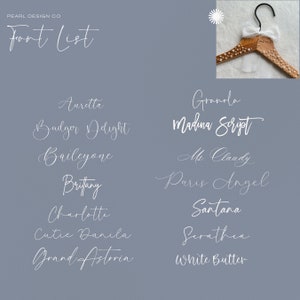 PEARL DESIGN CO
Font List
Auretta
Budger Delight
Baileyone
Brittany
Charlotte
Cutie Danila
Grand Astoria
Granola
Madina Script
Mr Claudy
Paris Angel
Santana
Sarathea
White Butter